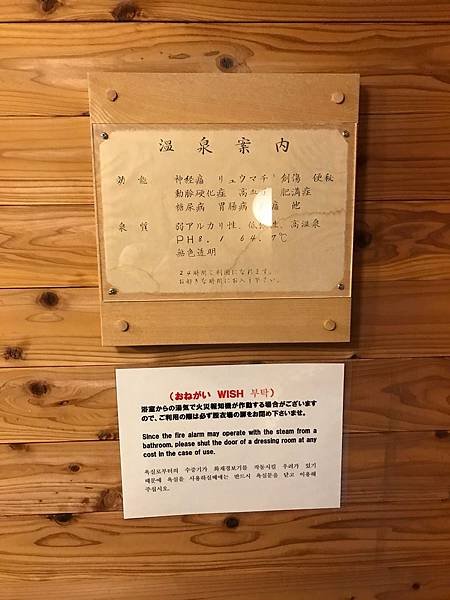 温泉案内
効能 神経痛 リュウマチ 創傷 便秘
動脈硬化症 高血 肥満症
糖尿病 胃腸病
泉質 弱アルカリ性、低 性、高温泉
PH8.1 64.7℃
無色透明
24時間ご利用になれます。
お好きな時間にお入り下さい。
(おねがい WISH 부탁)
浴室からの湯気で火災報知機が作動する場合がございます
ので、ご利用の際は必ず脱衣場の扉をお閉め下さいませ。
Since the fire alarm may operate with the steam from a
bathroom, please shut the door of a dressing room at any
cost in the case of use.
욕실로부터의 수증기가 화재경보기를 작동시킬 우려가 있기
때문에 욕실을 사용하실때에는 반드시 욕실문을 닫고 이용해
주십시오.